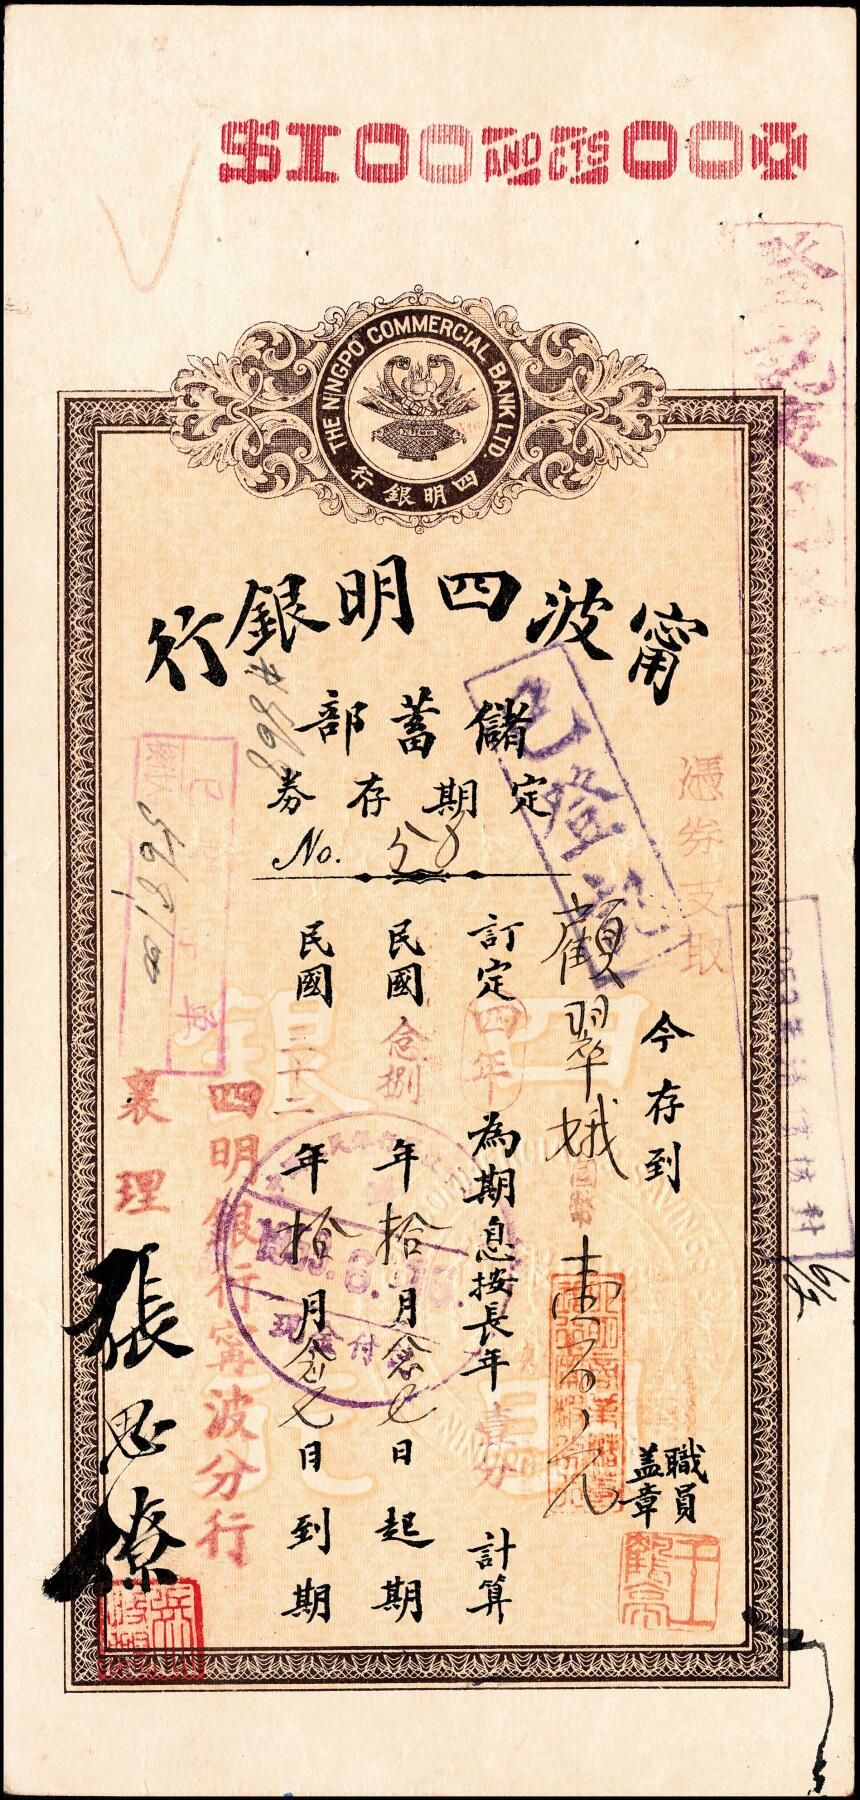 $100 AND CTS 00
THE NINGPO COMMERCIAL BANK LTD.
四明銀行
甯波四明銀行
儲蓄部
定期存券
No. 58
#568
已登記
憑券支取
今存到
顧翠娥
國幣
壹百元
職員
蓋章
王鶴亭
訂定四年為期息按長年壹分計算
民國念捌年拾月念七日起期
民國三十二年拾月念七日到期
四明銀行寧波分行
襄理
張思
現金付